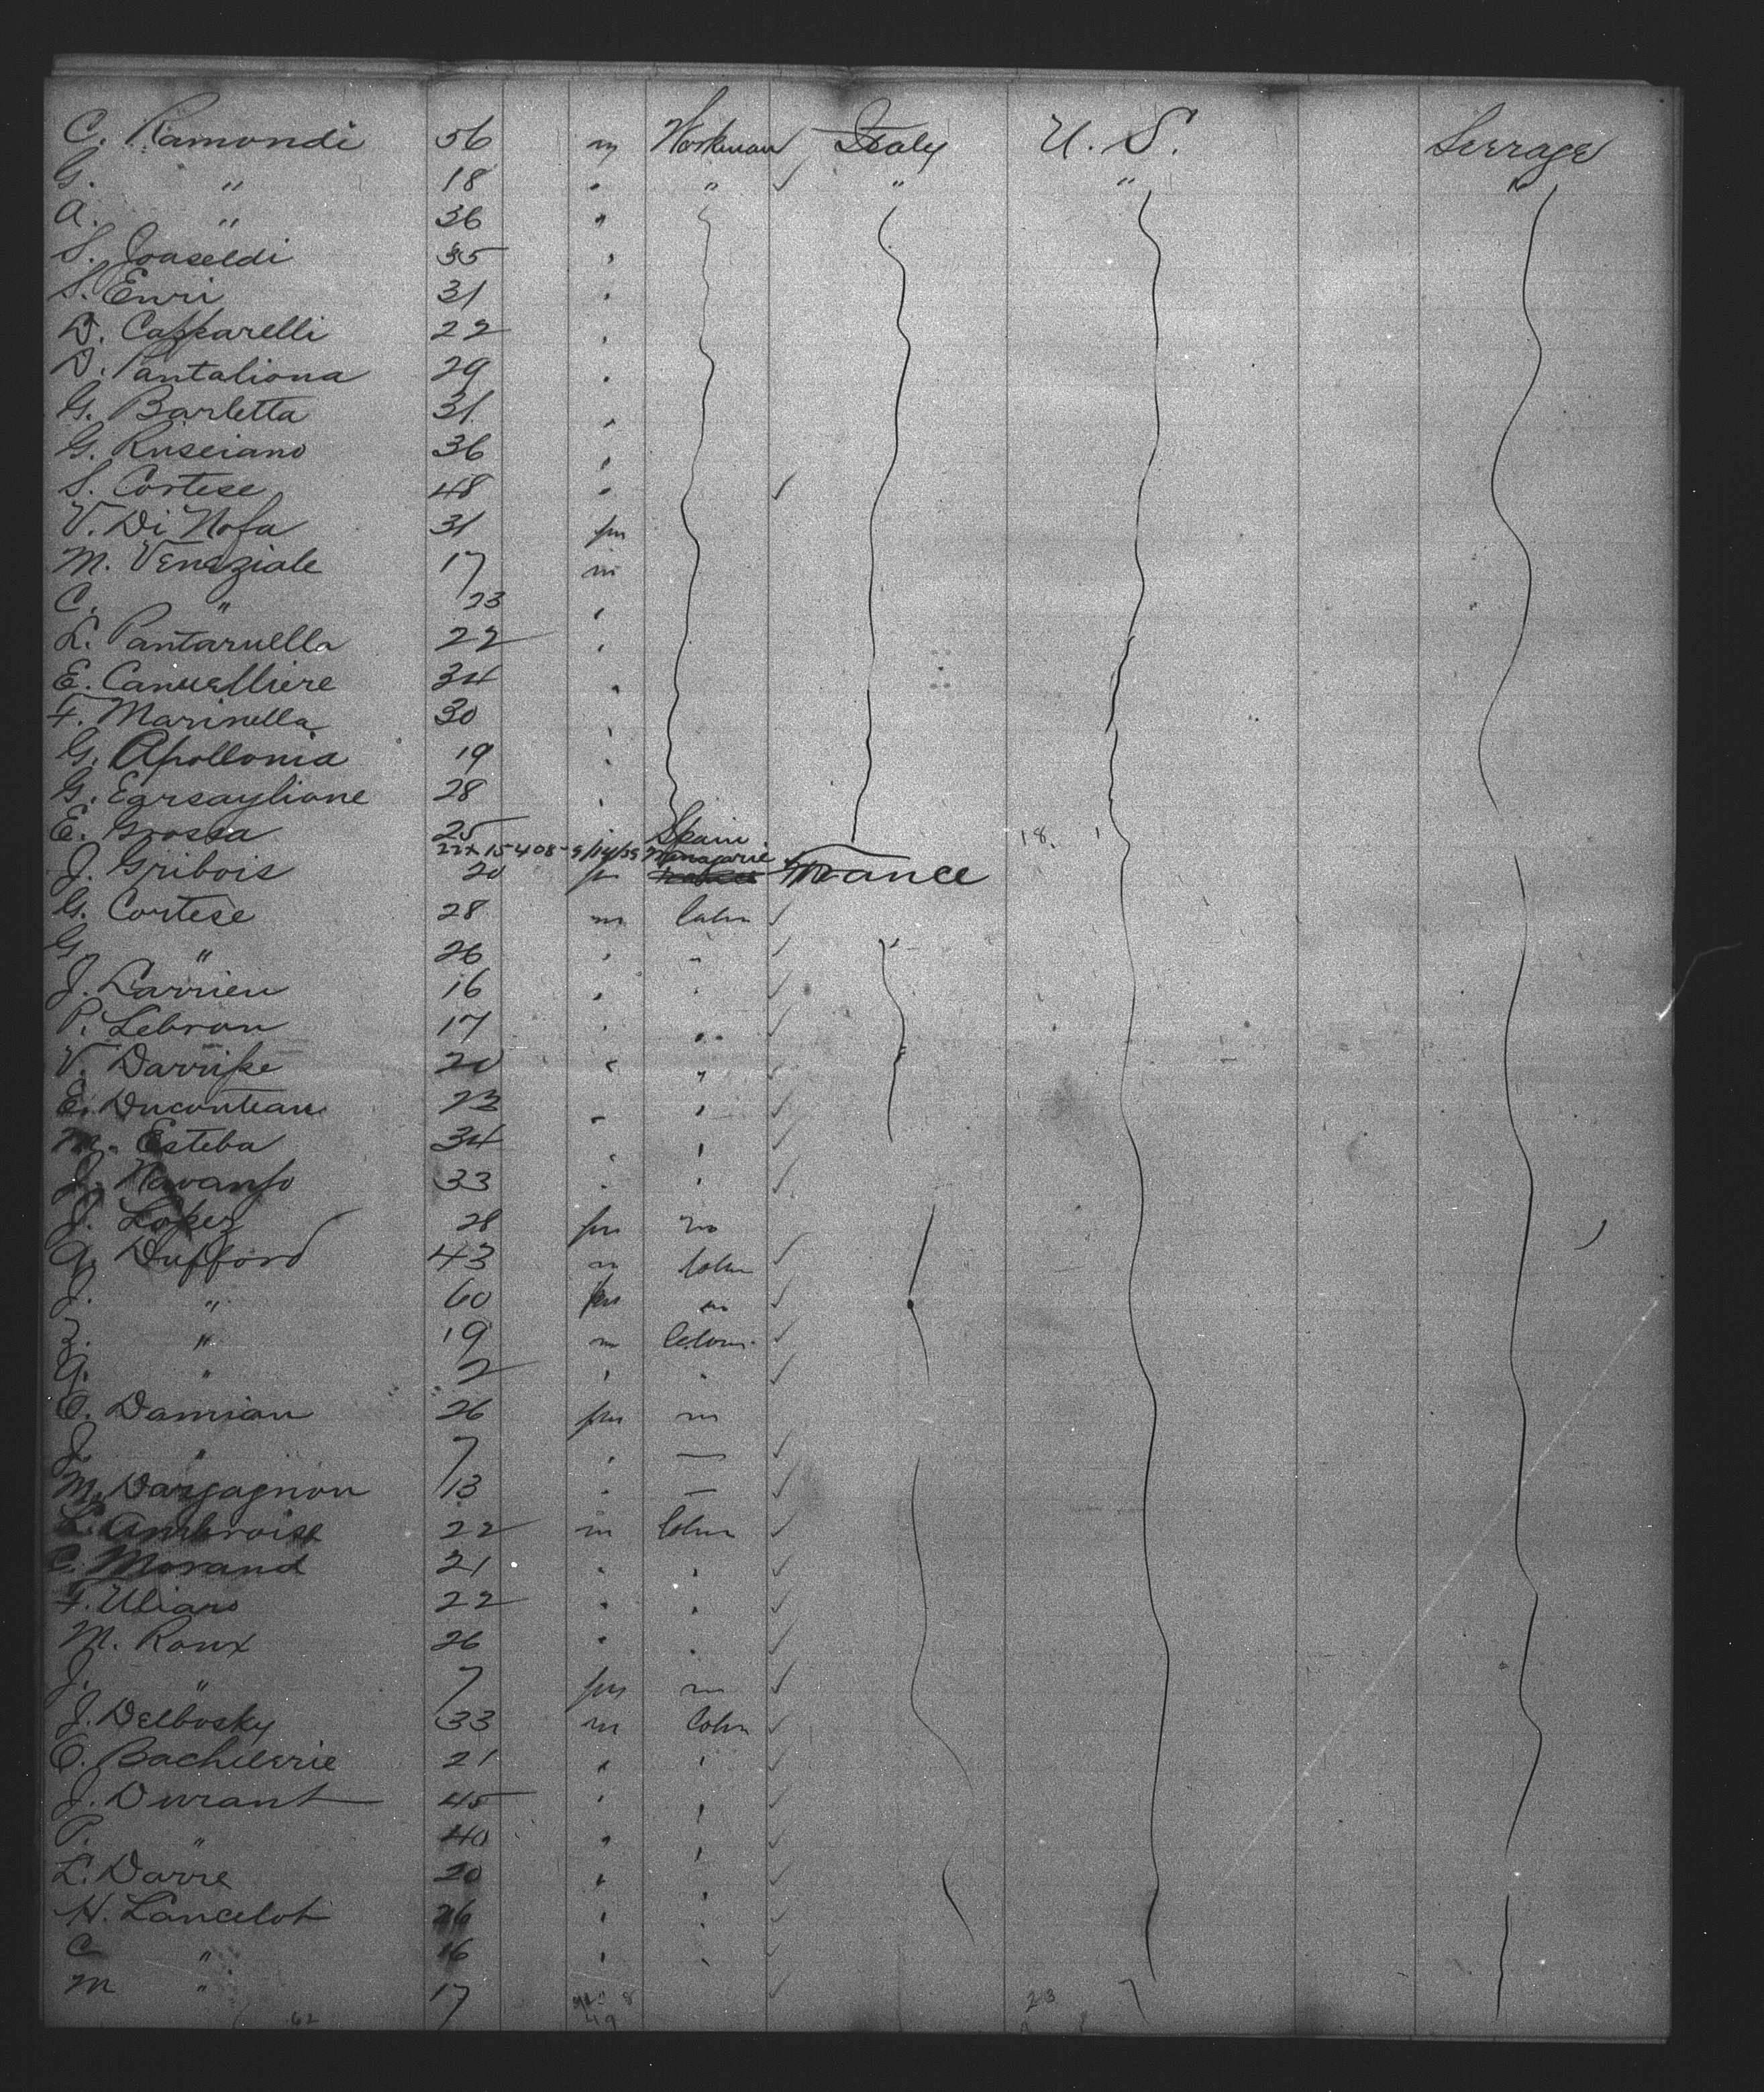 C. Ramondi 56 m Workman Italy U. S. Steerage
G. " 18 " " ✓ " " "
A. " 36 "
S. Joaseldi 35 "
S. Enri 31 "
D. Casparelli 22 "
D. Pantaliona 29 "
G. Barletta 31 "
G. Rusciano 36 "
S. Cortese 48 " ✓
V. Di Nofa 31 fm
M. Veneziale 17 m
C. " 23 "
L. Pantaruella 22 "
E. Canuelliere 34 "
F. Marinella 30 "
G. Apollonia 19 "
G. Egrsaylione 28 "
E. Grossa 25 Spain 18. 1
22x15408-9/14/39
J. Gribois 20 f France
G. Cortese 28 m Labr ✓
G. " 26 " " ✓
J. Larrieu 16 " " ✓
P. Lebrou 17 " " ✓
V. Darripe 20 " " ✓
E. Ducouteau 23 " " ✓
M. Esteba 34 " " ✓
J. Navanfo 33 " " ✓
J. Lopez 28 fm no
A. Dufford 43 m Labr ✓
J. " 60 fm no ✓
Z. " 19 m ✓
G. " 2 " " ✓
C. Damian 26 fm no
J. " 7 " — ✓
M. Dargagnon 13 " — ✓
L. Ambroise 22 m Labr ✓
C. Morand 21 " " ✓
F. Uliaro 22 " " ✓
M. Roux 26 " " ✓
J. " 7 fm no ✓
J. Delbosky 33 m Labr ✓
C. Bachelerie 21 " " ✓
J. Durant 45 " " ✓
P. " 40 " " ✓
L. Darre 20 " " ✓
H. Lancelot 26 " " ✓
C " 16 " " ✓
M " 17 ✓
62 49 23